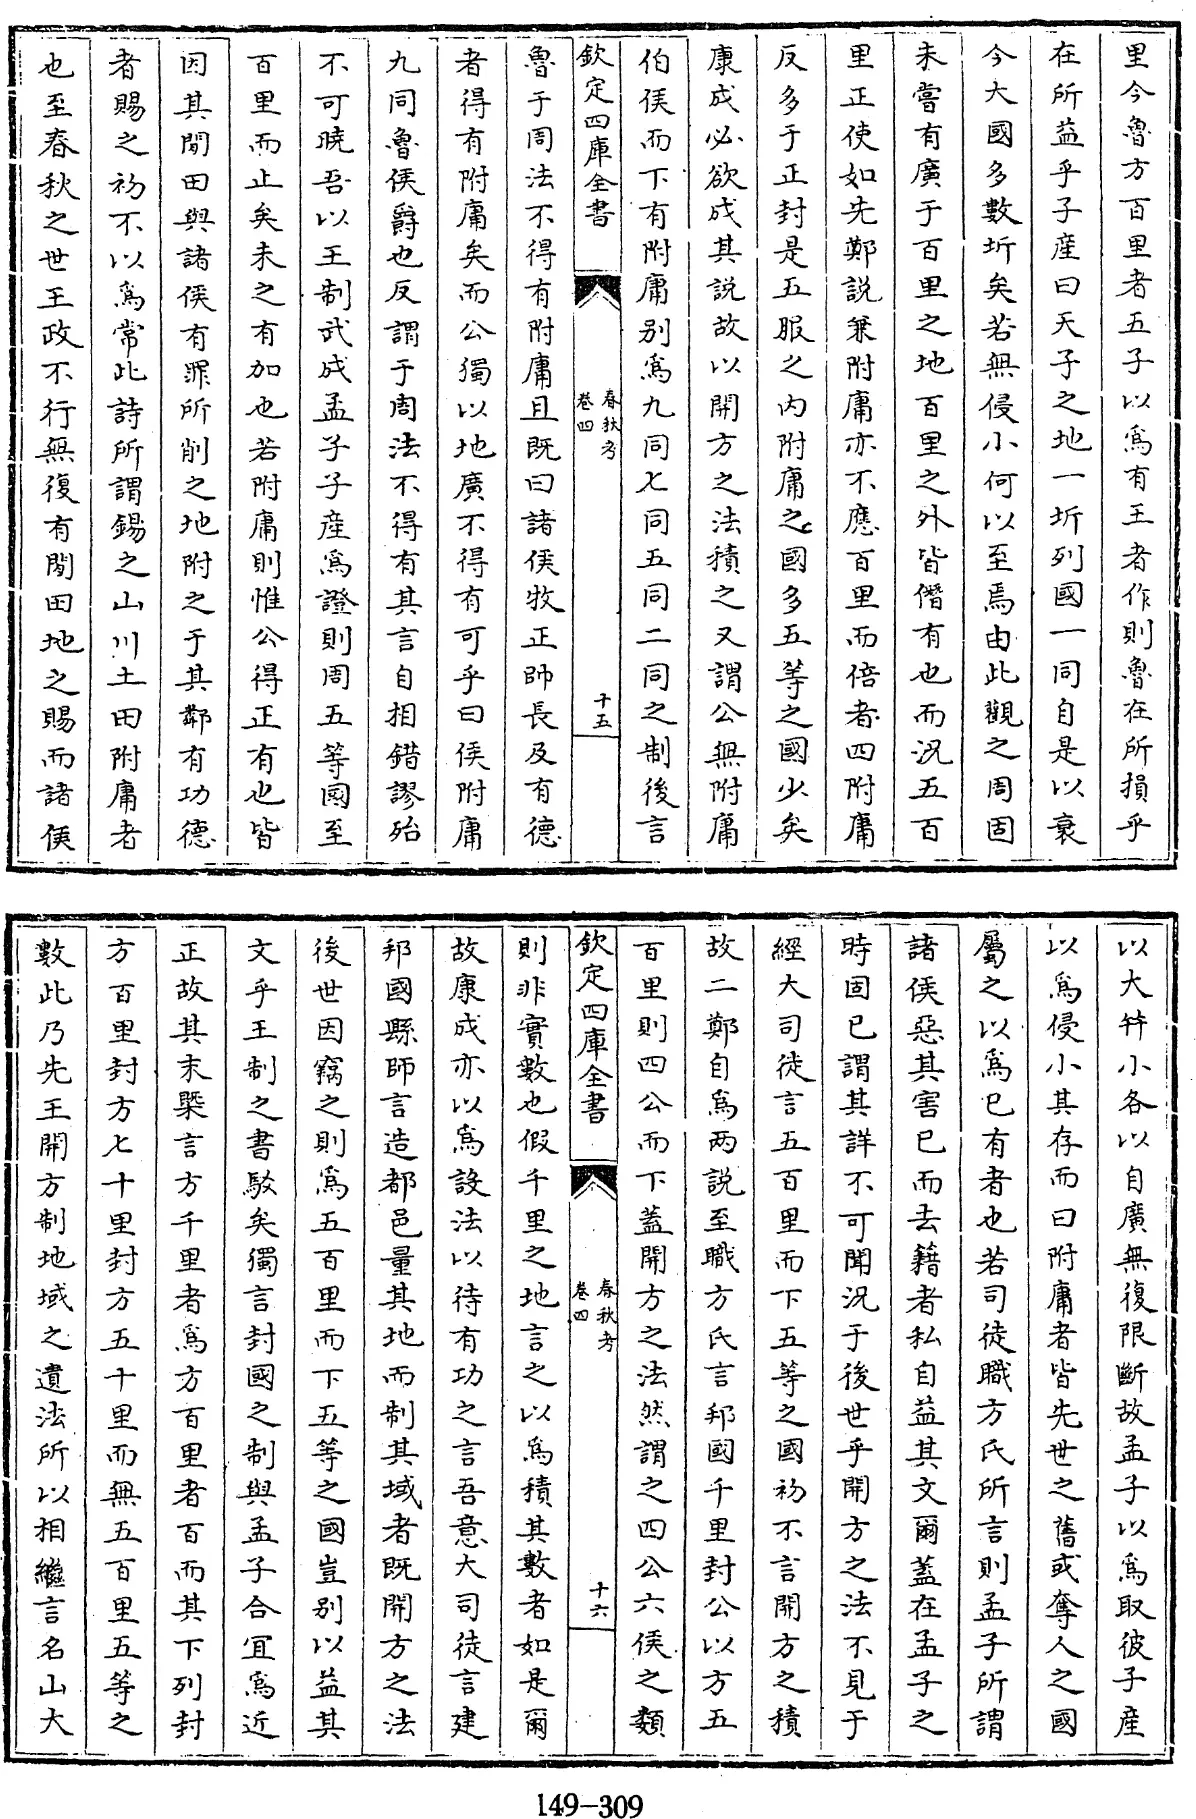 里今魯方百里者五子以爲有王者作則魯在所損乎
在所益乎子産曰天子之地一圻列國一同自是以衰
今大國多數圻矣若無侵小何以至焉由此觀之周固
未嘗有廣于百里之地百里之外皆僭有也而況五百
里正使如先鄭説兼附庸亦不應百里而倍者四附庸
反多于正封是五服之内附庸之國多五等之國少矣
康成必欲成其説故以開方之法積之又謂公無附庸
伯侯而下有附庸别爲九同七同五同二同之制後言
欽定四庫全書
春秋考
卷四
十五
魯于周法不得有附庸且既曰諸侯牧正帥長及有德
者得有附庸矣而公獨以地廣不得有可乎曰侯附庸
九同魯侯爵也反謂于周法不得有其言自相錯謬殆
不可曉吾以王制武成孟子子産爲證則周五等國至
百里而止矣未之有加也若附庸則惟公得正有也皆
因其閒田與諸侯有罪所削之地附之于其鄰有功德
者賜之初不以爲常此詩所謂錫之山川土田附庸者
也至春秋之世王政不行無復有閒田地之賜而諸侯
以大并小各以自廣無復限斷故孟子以爲取彼子産
以爲侵小其存而曰附庸者皆先世之舊或奪人之國
屬之以爲已有者也若司徒職方氏所言則孟子所謂
諸侯惡其害已而去籍者私自益其文爾蓋在孟子之
時固已謂其詳不可聞況于後世乎開方之法不見于
經大司徒言五百里而下五等之國初不言開方之積
故二鄭自爲两説至職方氏言邦國千里封公以方五
百里則四公而下蓋開方之法然謂之四公六侯之類
欽定四庫全書
春秋考
卷四
十六
則非實數也假千里之地言之以爲積其數者如是爾
故康成亦以爲設法以待有功之言吾意大司徒言建
邦國縣師言造都邑量其地而制其域者既開方之法
後世因竊之則爲五百里而下五等之國豈别以益其
文乎王制之書駁矣獨言封國之制與孟子合宜爲近
正故其末槩言方千里者爲方百里者百而其下列封
方百里封方七十里封方五十里而無五百里五等之
數此乃先王開方制地域之遺法所以相繼言名山大
149-309